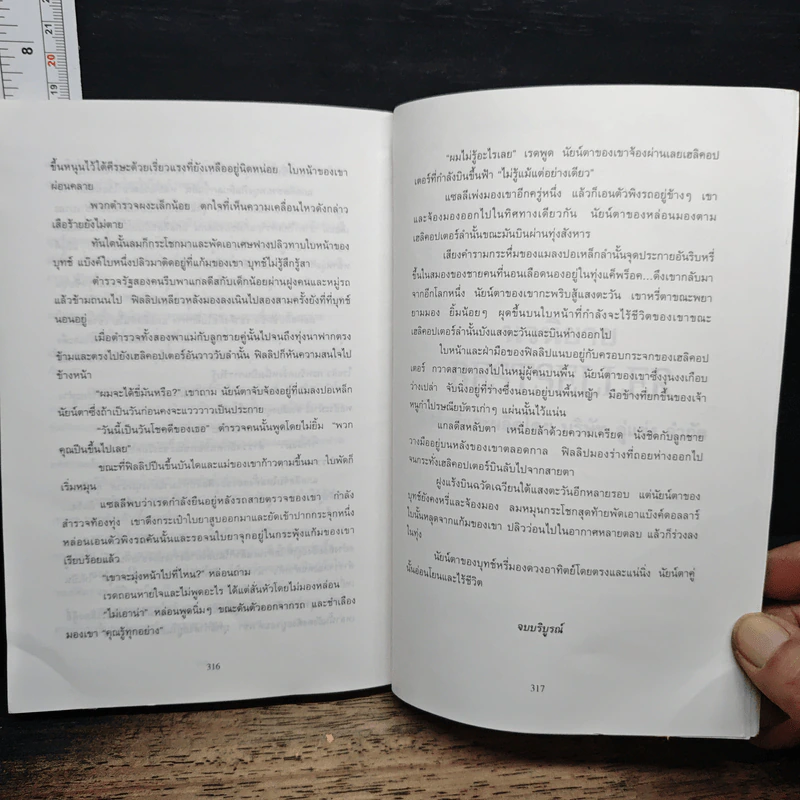 8
19
20
21
ขึ้นหนุนไว้ใต้ศีรษะด้วยเรี่ยวแรงที่ยังเหลืออยู่นิดหน่อย ใบหน้าของเขา
ผ่อนคลาย
พวกตำรวจผงะเล็กน้อย ตกใจที่เห็นความเคลื่อนไหวดังกล่าว
เสือร้ายยังไม่ตาย
ทันใดนั้นลมก็กระโชกมาและพัดเอาเศษฟางปลิวทาบใบหน้าของ
บุทช์ แบ๊งค์ใบหนึ่งปลิวมาติดอยู่ที่แก้มของเขา บุทช์ไม่รู้สึกรู้สา
ตำรวจรัฐสองคนรีบพาแกลดีสกับเด็กน้อยผ่านฝูงคนและหมู่รถ
แล้วข้ามถนนไป ฟิลลิปเหลียวหลังมองลงเนินไปสองสามครั้งยังที่ที่บุทช์
นอนอยู่
เมื่อตำรวจทั้งสองพาแม่กับลูกชายคู่นั้นไปจนถึงทุ่งนาฟากตรง
ข้ามและตรงไปยังเฮลิคอปเตอร์อันวาววับลำนั้น ฟิลลิปก็หันความสนใจไป
ข้างหน้า
“ผมจะได้ขี่มันหรือ?” เขาถาม นัยน์ตาจับจ้องอยู่ที่แมลงปอเหล็ก
นัยน์ตาซึ่งถ้าเป็นวันก่อนคงจะแวววาวเป็นประกาย
“วันนี้เป็นวันโชคดีของเธอ” ตำรวจคนนั้นพูดโดยไม่ยิ้ม “พวก
คุณปีนขึ้นไปเลย”
ขณะที่ฟิลลิปปีนขึ้นบันไดและแม่ของเขาก้าวตามขึ้นมา ใบพัดก็
เริ่มหมุน
แซลลีพบว่าเรดกำลังยืนอยู่หลังรถสายตรวจของเขา กำลัง
สำรวจท้องทุ่ง เขาดึงกระเป๋าใบยาสูบออกมาและยัดเข้าปากกระจุกหนึ่ง
หล่อนเอนตัวพิงรถคันนั้นและรอจนใบยาจุกอยู่ในกระพุ้งแก้มของเขา
เรียบร้อยแล้ว
“เขาจะมุ่งหน้าไปที่ไหน?” หล่อนถาม
เรดถอนหายใจและไม่พูดอะไร ได้แต่สั่นหัวโดยไม่มองหล่อน
“ไม่เอาน่า” หล่อนพูดนิ่มๆ ขณะดันตัวออกจากรถ และชำเลือง
มองเขา “คุณรู้ทุกอย่าง”
316
“ผมไม่รู้อะไรเลย” เรดพูด นัยน์ตาของเขาจ้องผ่านเลยเฮลิคอป
เตอร์ที่กำลังบินขึ้นฟ้า “ไม่รู้แม้แต่อย่างเดียว”
แซลลีเพ่งมองเขาอีกครู่หนึ่ง แล้วก็เอนตัวพิงรถอยู่ข้างๆ เขา
และจ้องมองออกไปในทิศทางเดียวกัน นัยน์ตาของหล่อนมองตาม
เฮลิคอปเตอร์ลำนั้นขณะมันบินผ่านทุ่งสังหาร
เสียงคำรามกระหึ่มของแมลงปอเหล็กลำนั้นจุดประกายอันริบหรี่
ขึ้นในสมองของชายคนที่นอนเลือดนองอยู่ในทุ่งแค็พร็อค...ดึงเขากลับมา
จากอีกโลกหนึ่ง นัยน์ตาของเขากะพริบสู้แสงตะวัน เขาหรี่ตาขณะพยา
ยามมอง ยิ้มน้อยๆ ผุดขึ้นบนใบหน้าที่กำลังจะไร้ชีวิตของเขาขณะ
เฮลิคอปเตอร์ลำนั้นบังแสงตะวันและบินห่างออกไป
ใบหน้าและฝ่ามือของฟิลลิปแนบอยู่กับครอบกระจกของเฮลิคอป
เตอร์ กวาดสายตาลงไปในหมู่ผู้คนบนพื้น นัยน์ตาของเขาซึ่งงุนงงเกือบ
ว่างเปล่า จับนิ่งอยู่ที่ร่างซึ่งนอนอยู่บนพื้นหญ้า มือข้างที่ยกขึ้นของเจ้า
หนูกำไปรษณียบัตรเก่าๆ แผ่นนั้นไว้แน่น
แกลดีสหลับตา เหนื่อยล้าด้วยความเครียด นั่งชิดกับลูกชาย
วางมืออยู่บนหลังของเขาตลอดกาล ฟิลลิปมองร่างที่ถอยห่างออกไป
จนกระทั่งเฮลิคอปเตอร์บินลับไปจากสายตา
ฝูงแร้งบินฉวัดเฉวียนใต้แสงตะวันอีกหลายรอบ แต่นัยน์ตาของ
บุทช์ยังคงหรี่และจ้องมอง ลมหมุนกระโชกสุดท้ายพัดเอาแบ๊งค์ดอลลาร์
ใบนั้นหลุดจากแก้มของเขา ปลิวว่อนไปในอากาศหลายตลบ แล้วก็ร่วงลง
ในทุ่ง
นัยน์ตาของบุทช์หรี่มองดวงอาทิตย์โดยตรงและแน่นิ่ง นัยน์ตาคู่
นั้นอ่อนโยนและไร้ชีวิต
จบบริบูรณ์
317